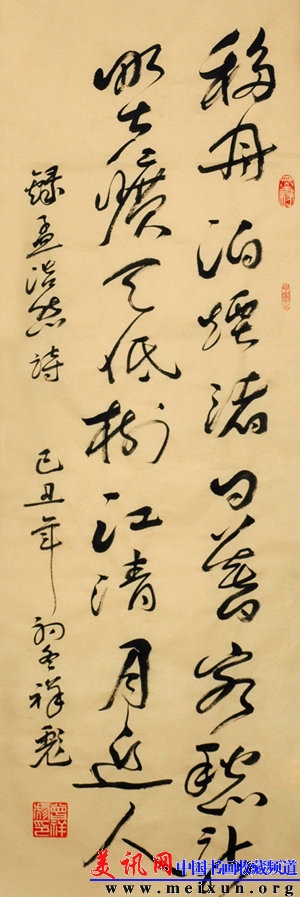 移舟泊煙渚日暮客愁新
野曠天低樹江清月近人
錄孟浩然詩 己丑年初冬祥彪
美讯网 中国书画收藏频道
www.meixun.org